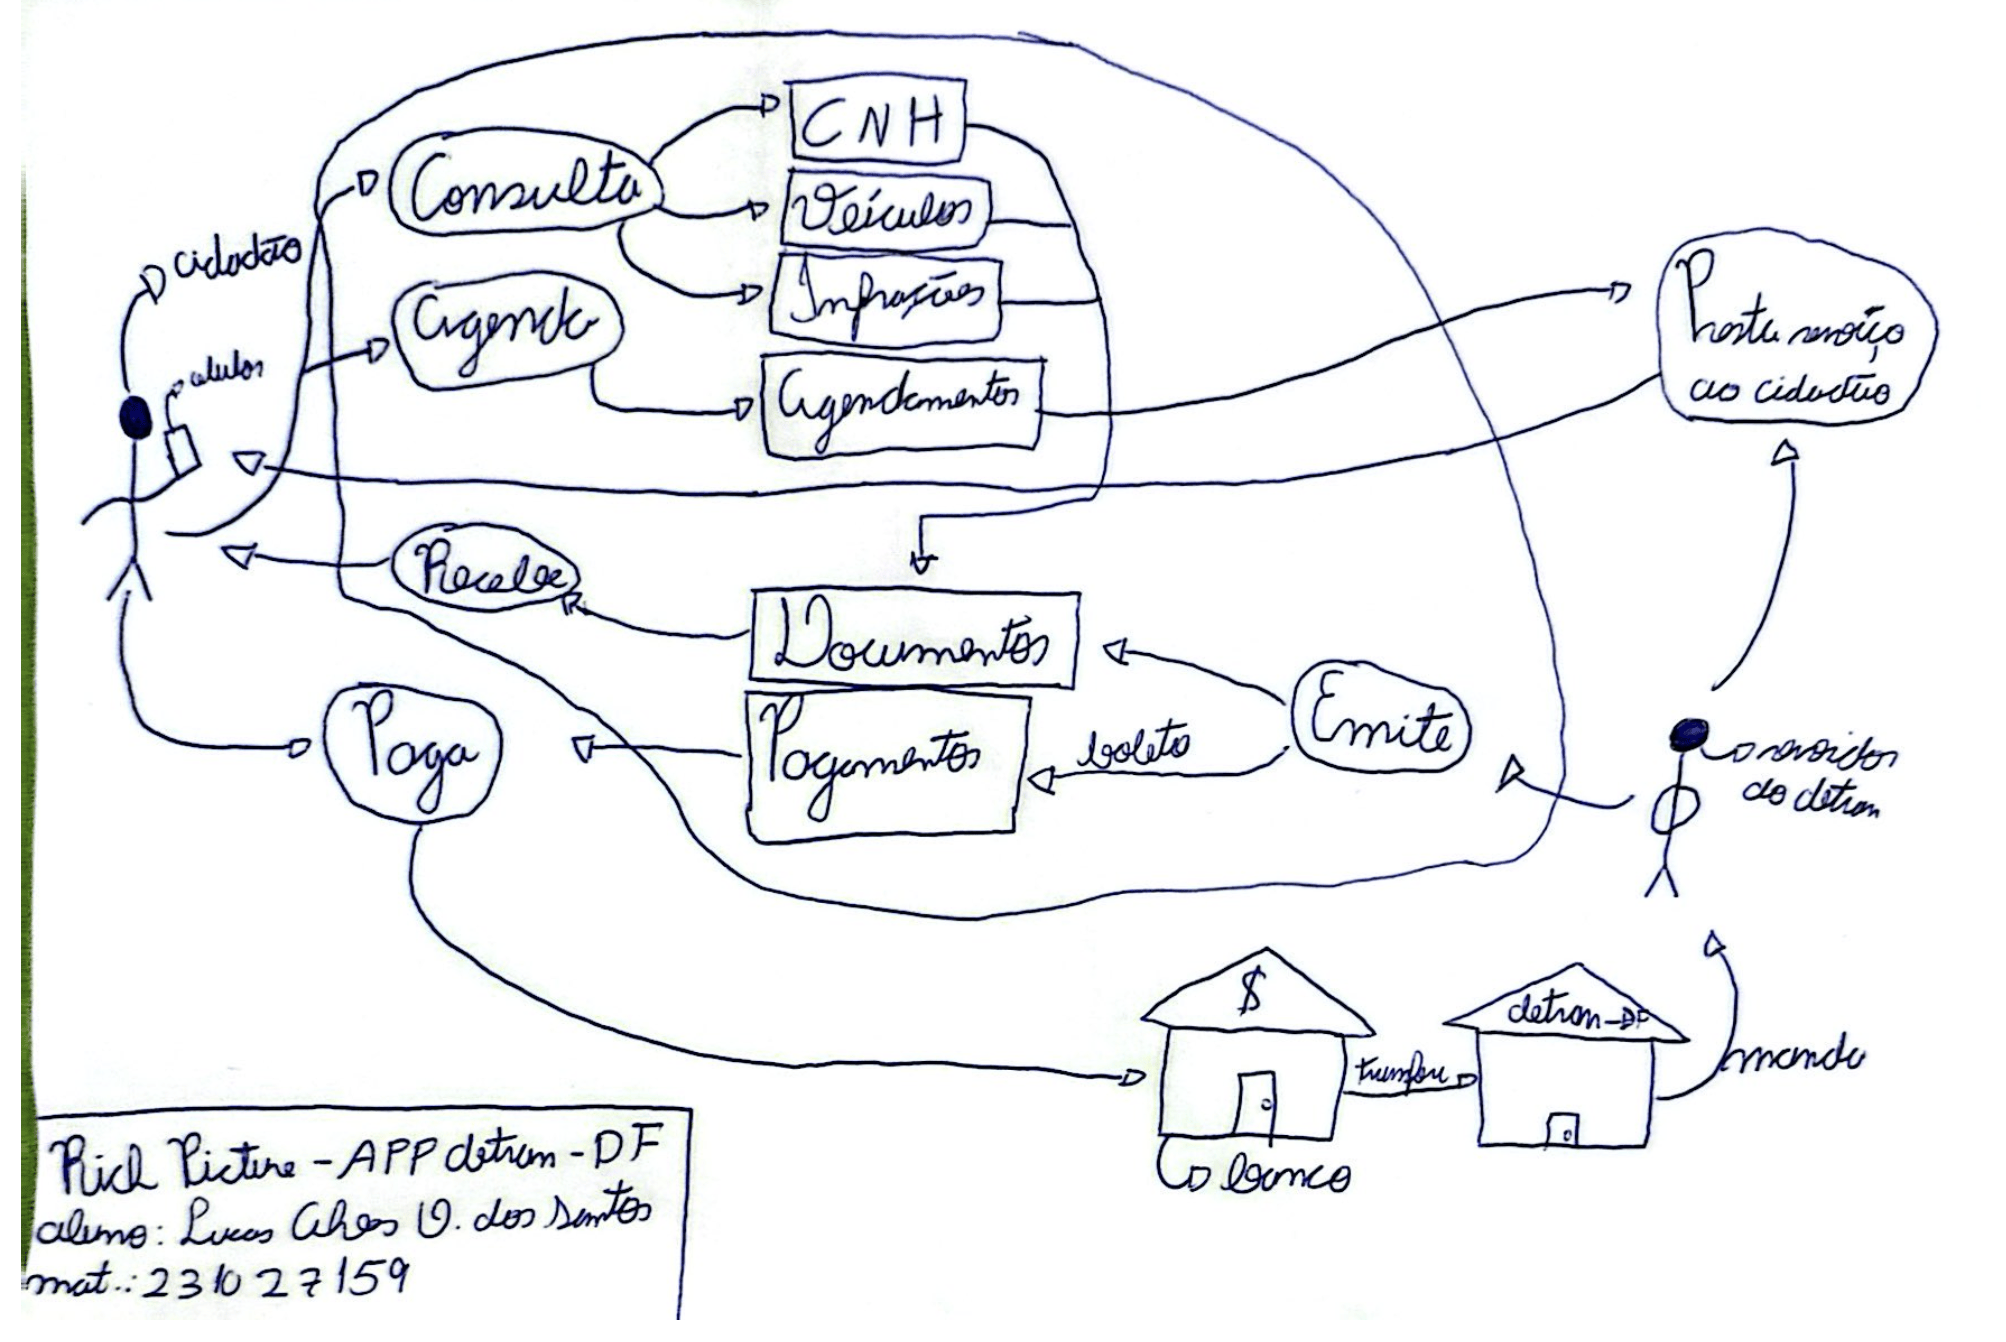 CNH
Consulta
Veículos
cidadão
Infrações
Agenda
Presta serviço
ao cidadão
celular
Agendamentos
Recebe
Documentos
Emite
Paga
Pagamentos
boleto
servidor
do detran
$
detran-DF
manda
banco
Rich Picture - APP detran - DF
aluno: Lucas Alves V. dos Santos
mat.: 231027159